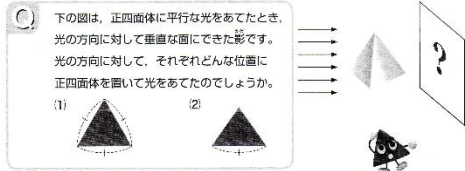 Q
下の図は，正四面体に平行な光をあてたとき，
光の方向に対して垂直な面にできた影です。
光の方向に対して，それぞれどんな位置に
正四面体を置いて光をあてたのでしょうか。
(1) (2)
?